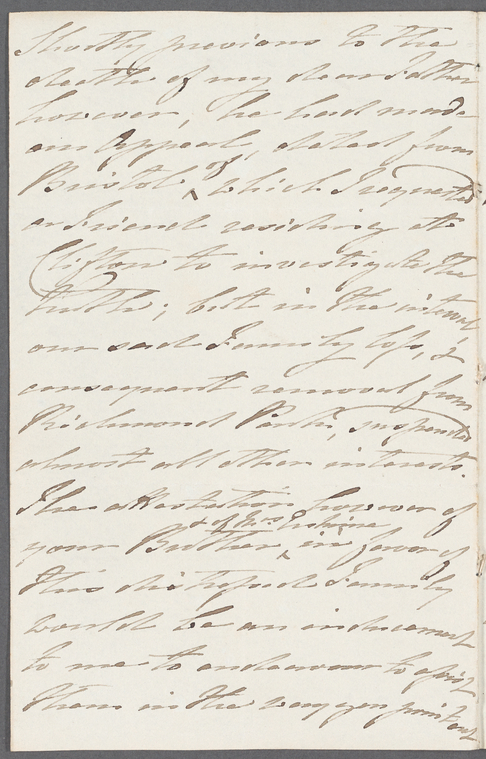 Shortly previous to the
death of my dear Father
however, he had made
an Appeal, dated from
Bristol, ^of^ which I requested
a Friend residing at
Clifton to investigate the
truth; but in the interval,
our sad Family loss, &
consequent removal from
Richmond Park, suspended
almost all other interests.
The attestation however of
your Brother, ^& of Mrs Erskine^ in favor of
this distressed Family
would be an inducement
to me to endeavour to assist
them in the way you point out